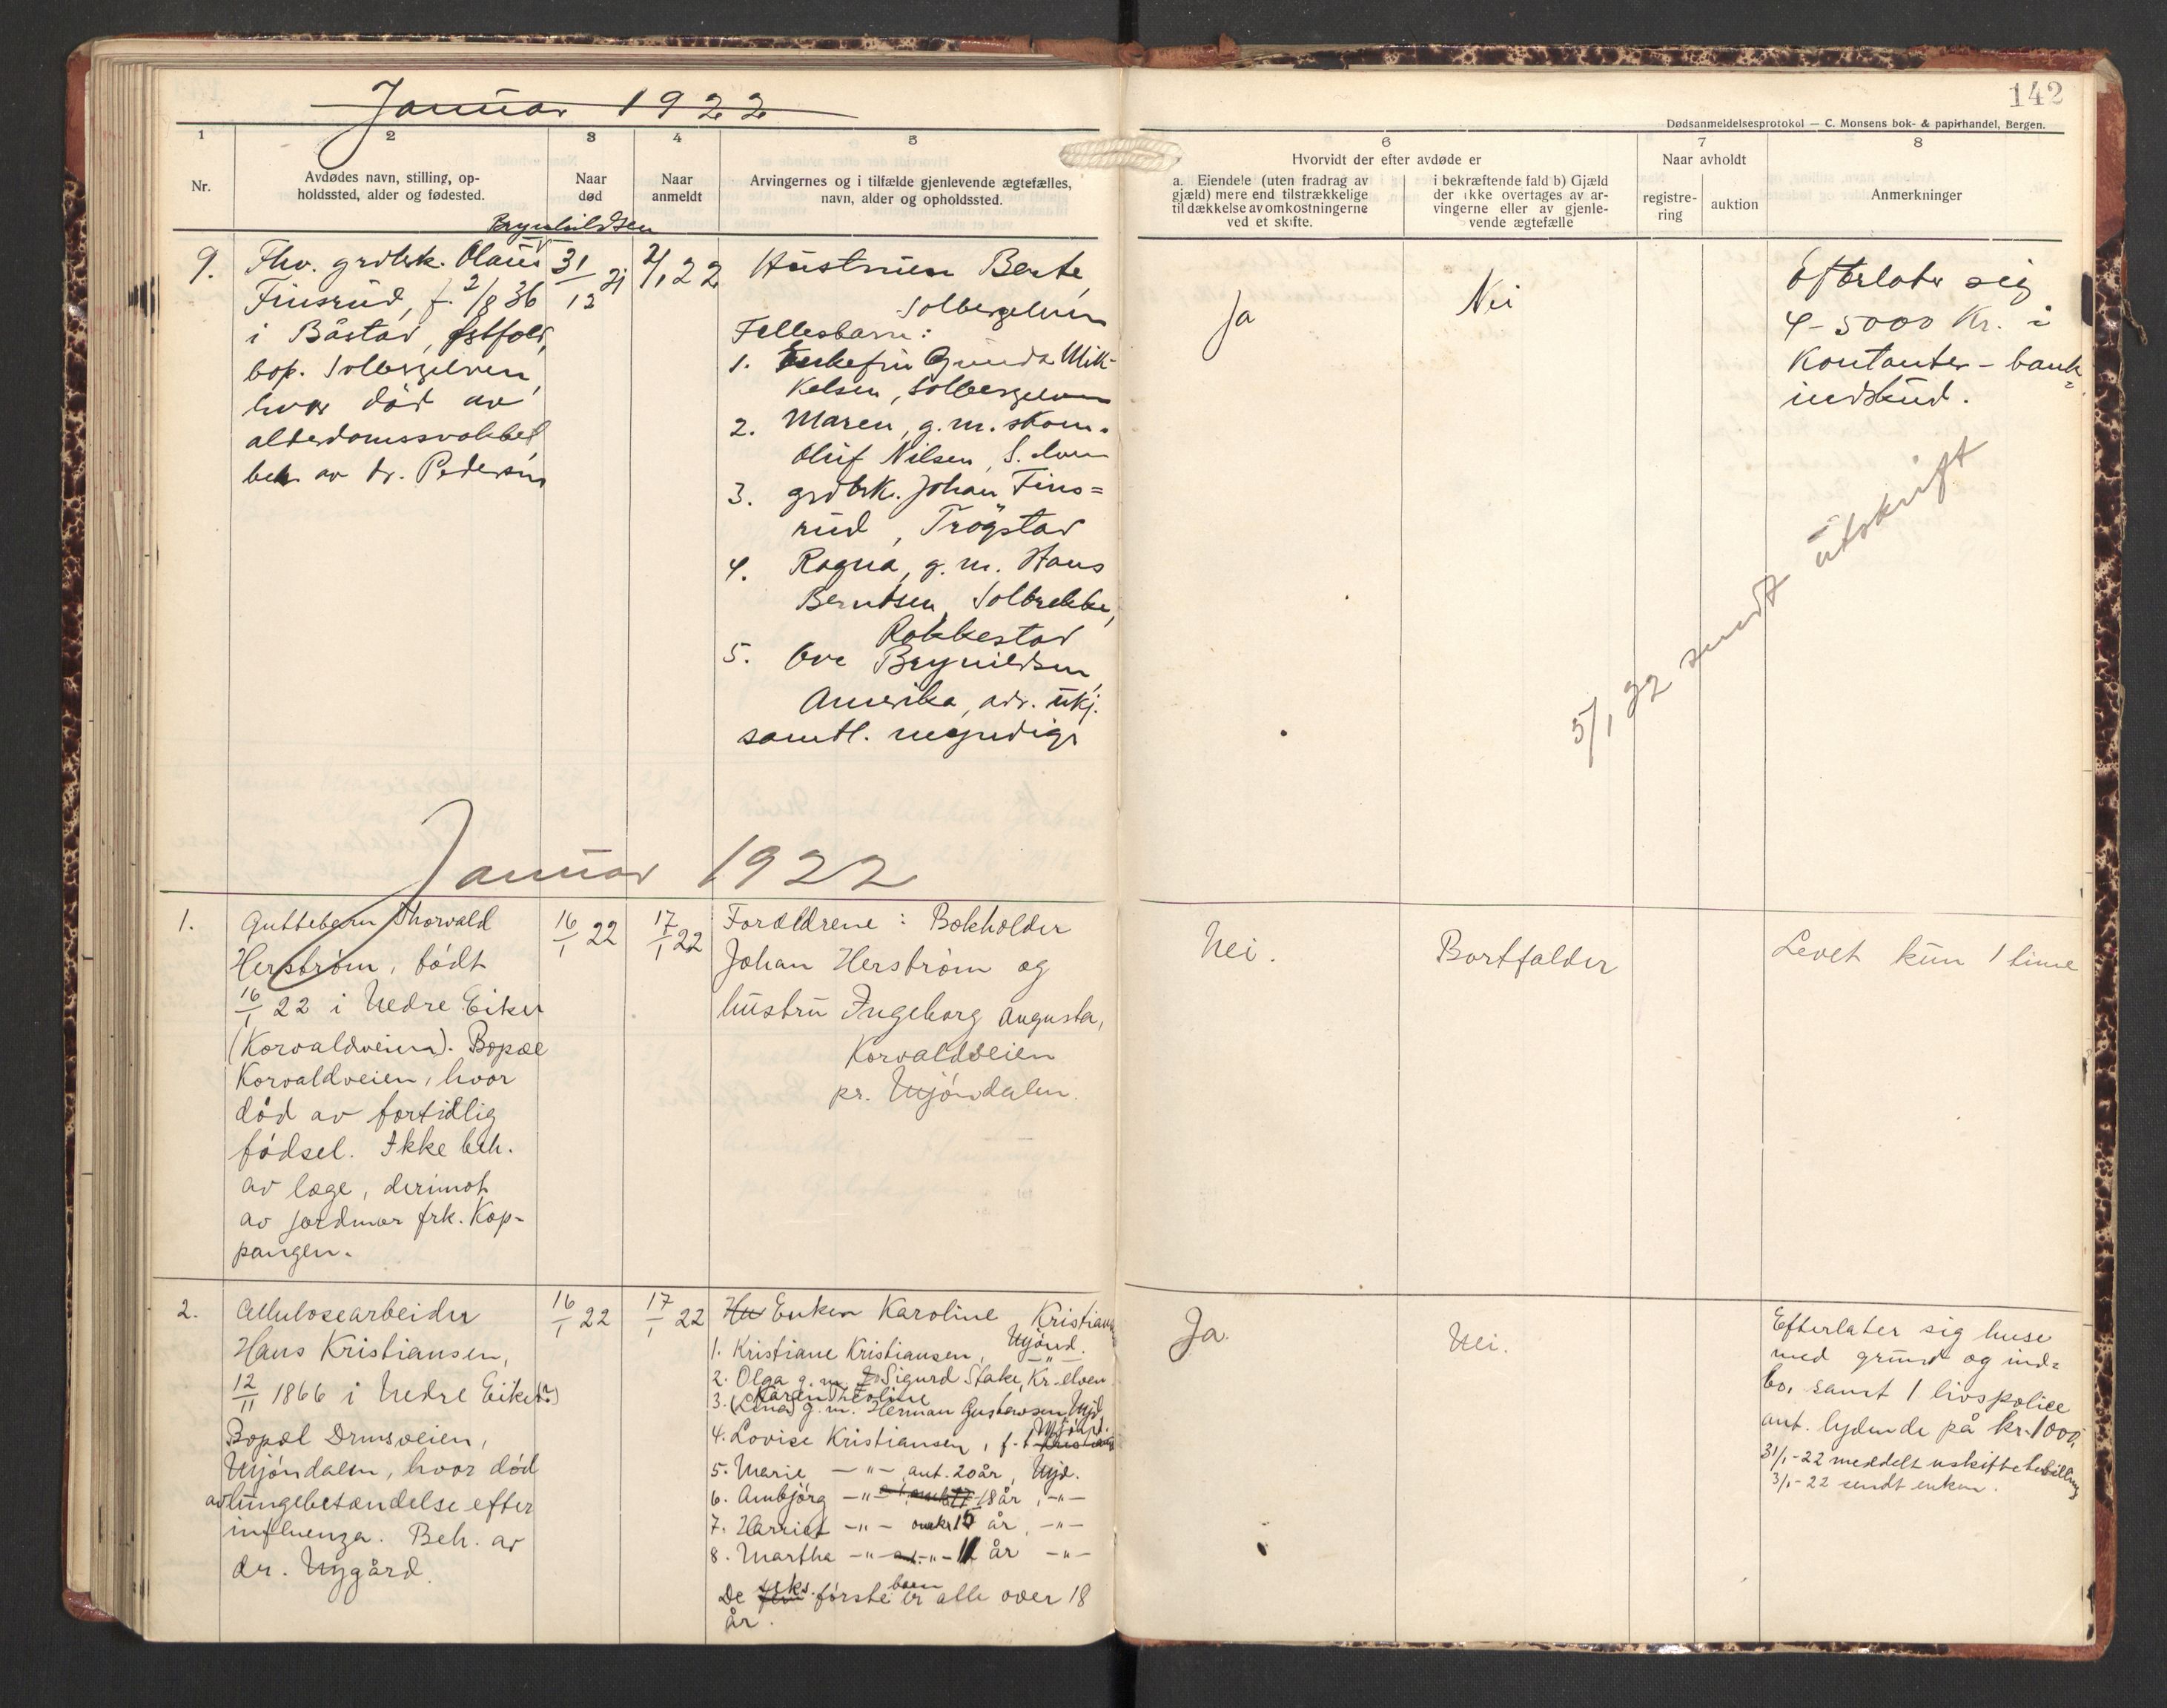 Januar 1922
142
Dødsanmeldelsesprotokol — C. Monsens bok- & papirhandel, Bergen.
1
2
3
4
5
6
7
8
Nr.
Avdødes navn, stilling, op-
holdssted, alder og fødested.
Naar
død
Naar
anmeldt
Arvingernes og i tilfælde gjenlevende ægtefælles,
navn, alder og opholdssted.
Hvorvidt der efter avdøde er
a. Eiendele (uten fradrag av
gjæld) mere end tilstrækkelige
til dækkelse av omkostningerne
ved et skifte.
i bekræftende fald b) Gjæld
der ikke overtages av ar-
vingerne eller av gjenle-
vende ægtefælle
Naar avholdt
registre-
ring
auktion
Anmerkninger
9.
Brynhildsen
Fhv. grdbrk. Olaus
Finsrud, f. 2/8 36
i Båstad, Østfold,
bop. Solbergelven,
hvor død av
alderdomssvakhet
beh av dr. Pedersen
31/12 21
2/1 22
Hustruen Berte,
Solbergelven
Fellesbarn:
1. Enkefru Gunda Mik-
kelsen, Solbergelven
2. Maren, g. m. skom.
Oluf Nilsen, S. elven
3. grdbrk. Johan Fins=
rud, Trögstad
4. Ragna, g. m. Hans
Berntsen, Solbrekke,
Rakkestad
5. Ove Brynildsen,
Amerika, adr. ukj.
samtl. myndige
Ja
Nei
Efterlater sig
4-5000 Kr. i
Kontanter - bank=
indskud.
5/1 22 sendt utskrift
Januar 1922
1.
Guttebarn Thorvald
Herström, födt
16/1 22 i Nedre Eiker
(Korvaldveien). Bopæl
Korvaldveien, hvor
död av fortidlig
födsel. Ikke beh.
av læge, derimot
av jordmor frk. Kop-
pangen.
16/1 22
17/1 22
Forældrene: Bokholder
Johan Herström og
hustru Ingeborg Augusta,
Korvaldveien
pr. Mjöndalen.
Nei.
Bortfalder
Levet kun 1 time
2.
Cellulosearbeider
Hans Kristiansen,
12/11 1866 i Nedre Eiker
Bopæl Drmsveien,
Mjöndalen, hvor död
av lungebetændelse efter
influenza. Beh. av
dr. Nygård.
16/1 22
17/1 22
Hu Enken Karoline Kristians
Mjönd.
1. Kristiane Kristiansen, -"-
2. Olga g. m. Sigurd Stake, Kr. elven.
Karen Theoline
3. (Lena) g. m. Herman Gustavsen Mjd
Mjönd.
4. Lovise Kristiansen,
5. Marie -"- ant. 20 år, Mjd.
6. Ambjörg -"- 18 år, -"-
7. Harriet -"- 15 år, -"-
8. Martha -"- 11 år -"-
De seks förste barn er alle over 18
år.
Ja.
Nei.
Efterlater sig huse
med grund og ind=
bo, samt 1 livspolice
ant. lydende på kr. 1000,
31/1-22 meddelt uskiftebevilling
3/1-22 sendt enken.